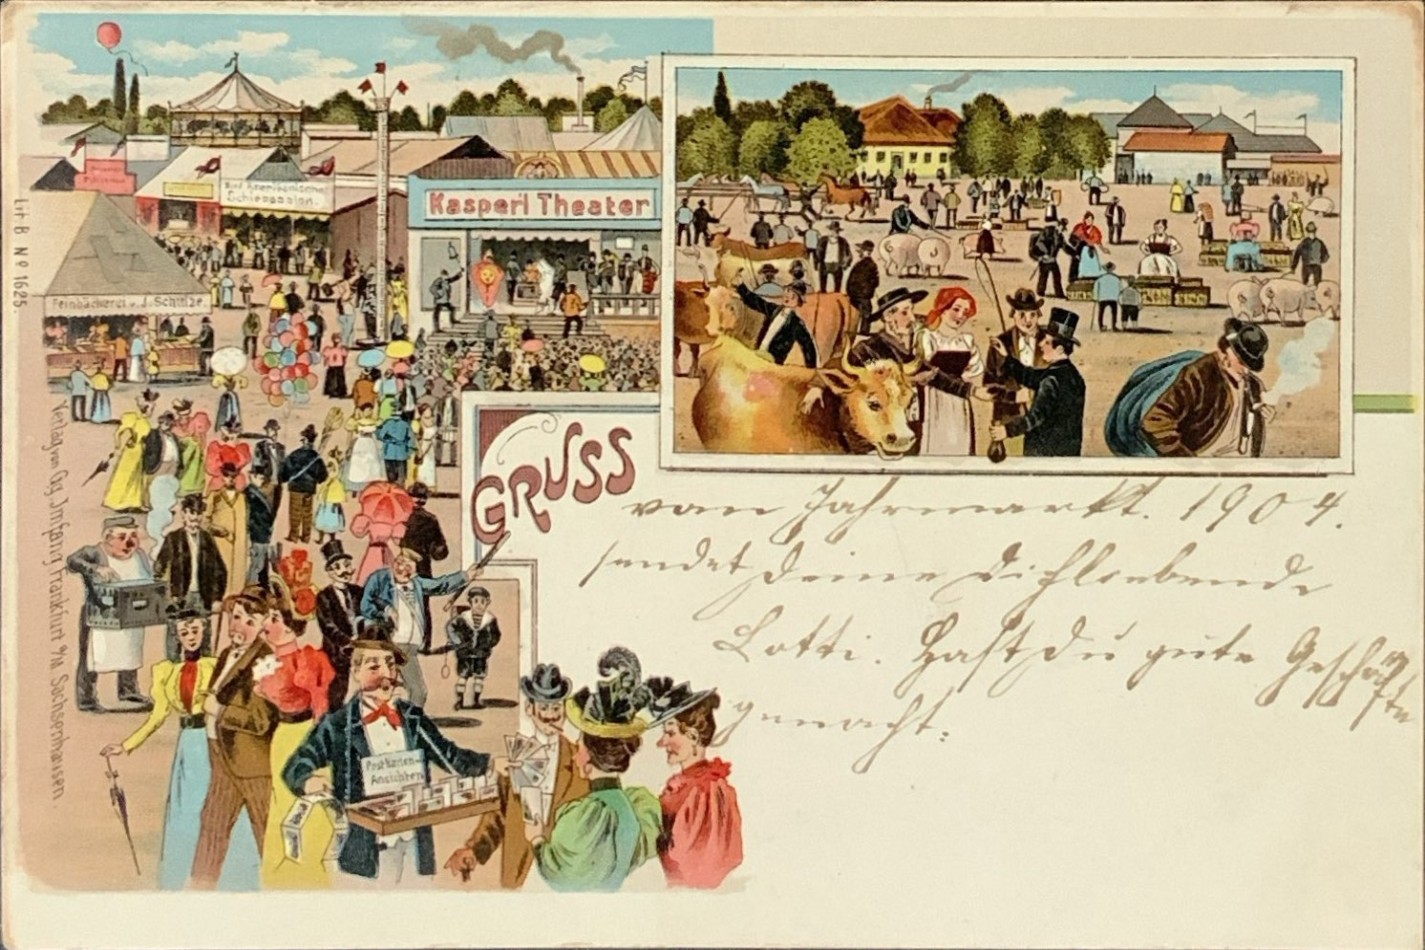 Kasperl Theater
Nord Amerikanischer
Schiesssalon.
Feinbäckerei v. J. Schitize
Lit. B. Nº 1625.
Verlag von Gg. Jmfang Frankfurt a/M Sachsenhausen.
GRUSS
vom Jahrmarkt. 1904.
sendet Deine Dichliebende
Lotti. Hast Du gute Geschäfte
gemacht.
Postkarten-
Ansichten